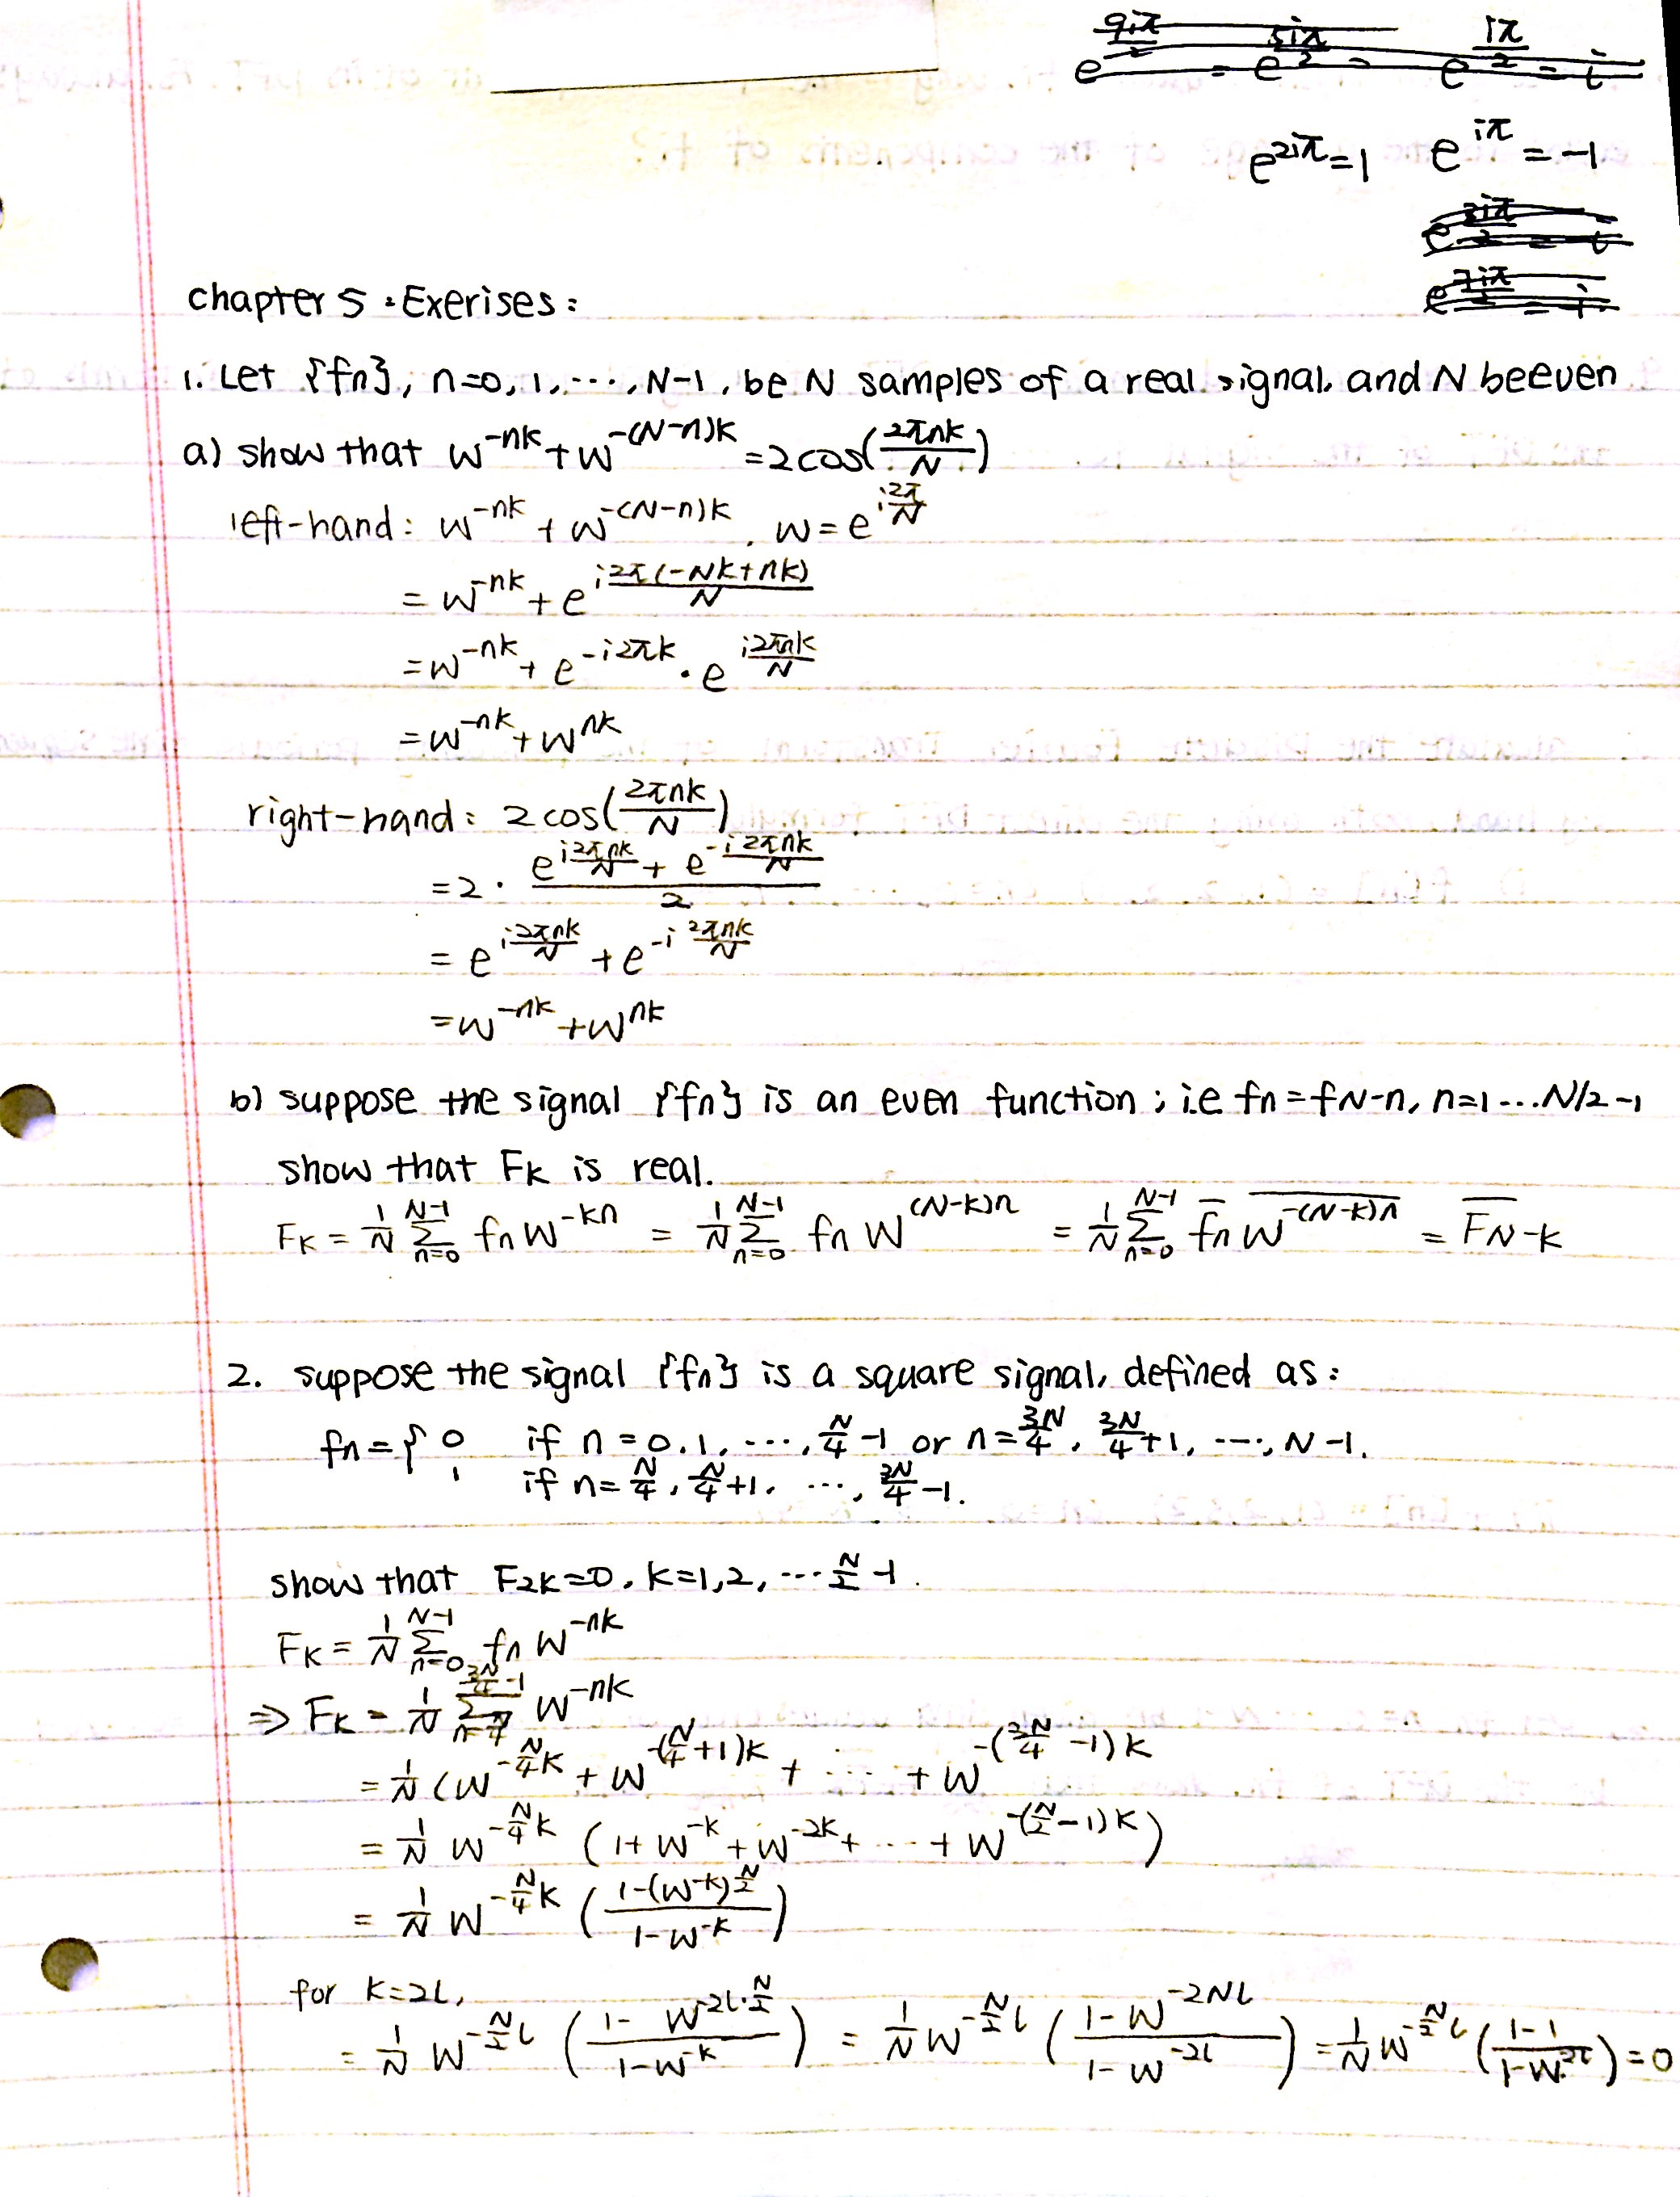 e^{2iπ}=1   e^{iπ}=-1
chapter 5. Exerises:
1. Let {fn}, n=0, 1, ..., N-1, be N samples of a real signal, and N beeven
a) show that w^{-nk}+w^{-(N-n)k}=2cos(\frac{2πnk}{N})
left-hand: w^{-nk}+w^{-(N-n)k}, w=e^{i\frac{2π}{N}}
=w^{-nk}+e^{i\frac{2π(-Nk+nk)}{N}}
=w^{-nk}+e^{-i2πk}·e^{i\frac{2πnk}{N}}
=w^{-nk}+w^{nk}
right-hand: 2cos(\frac{2πnk}{N})
=2·\frac{e^{i\frac{2πnk}{N}}+e^{-i\frac{2πnk}{N}}}{2}
=e^{i\frac{2πnk}{N}}+e^{-i\frac{2πnk}{N}}
=w^{-nk}+w^{nk}
b) suppose the signal {fn} is an even function; i.e fn=fN-n, n=1...N/2-1
show that Fk is real.
Fk=\frac{1}{N}\sum_{n=0}^{N-1} fn w^{-kn} = \frac{1}{N}\sum_{n=0}^{N-1} fn w^{(N-k)n} = \frac{1}{N}\sum_{n=0}^{N-1} \overline{fn} \overline{w^{-(N-k)n}} = \overline{FN}-k
2. suppose the signal {fn} is a square signal, defined as:
fn={ 0   if n=0.1, ..., \frac{N}{4}-1 or n=\frac{3N}{4}, \frac{3N}{4}+1, ..., N-1.
1   if n=\frac{N}{4}, \frac{N}{4}+1, ..., \frac{3N}{4}-1.
show that F2k=0, k=1,2, ...\frac{N}{2}-1.
Fk=\frac{1}{N}\sum_{n=0}^{N-1} fn w^{-nk}
⇒ Fk=\frac{1}{N}\sum_{n=\frac{N}{4}}^{\frac{3N}{4}-1} w^{-nk}
=\frac{1}{N}(w^{-\frac{N}{4}k}+w^{-(\frac{N}{4}+1)k}+...+w^{-(\frac{3N}{4}-1)k}
=\frac{1}{N}w^{-\frac{N}{4}k}(1+w^{-k}+w^{-2k}+...+w^{-(\frac{N}{2}-1)k})
=\frac{1}{N}w^{-\frac{N}{4}k}(\frac{1-(w^{-k})^{\frac{N}{2}}}{1-w^{-k}})
for k=2l,
=\frac{1}{N}w^{-\frac{N}{2}l}(\frac{1-w^{-2l·\frac{N}{2}}}{1-w^{-k}})=\frac{1}{N}w^{-\frac{N}{2}l}(\frac{1-w^{-2Nl}}{1-w^{-2l}})=\frac{1}{N}w^{-\frac{N}{2}l}(\frac{1-1}{1-w^{-2l}})=0